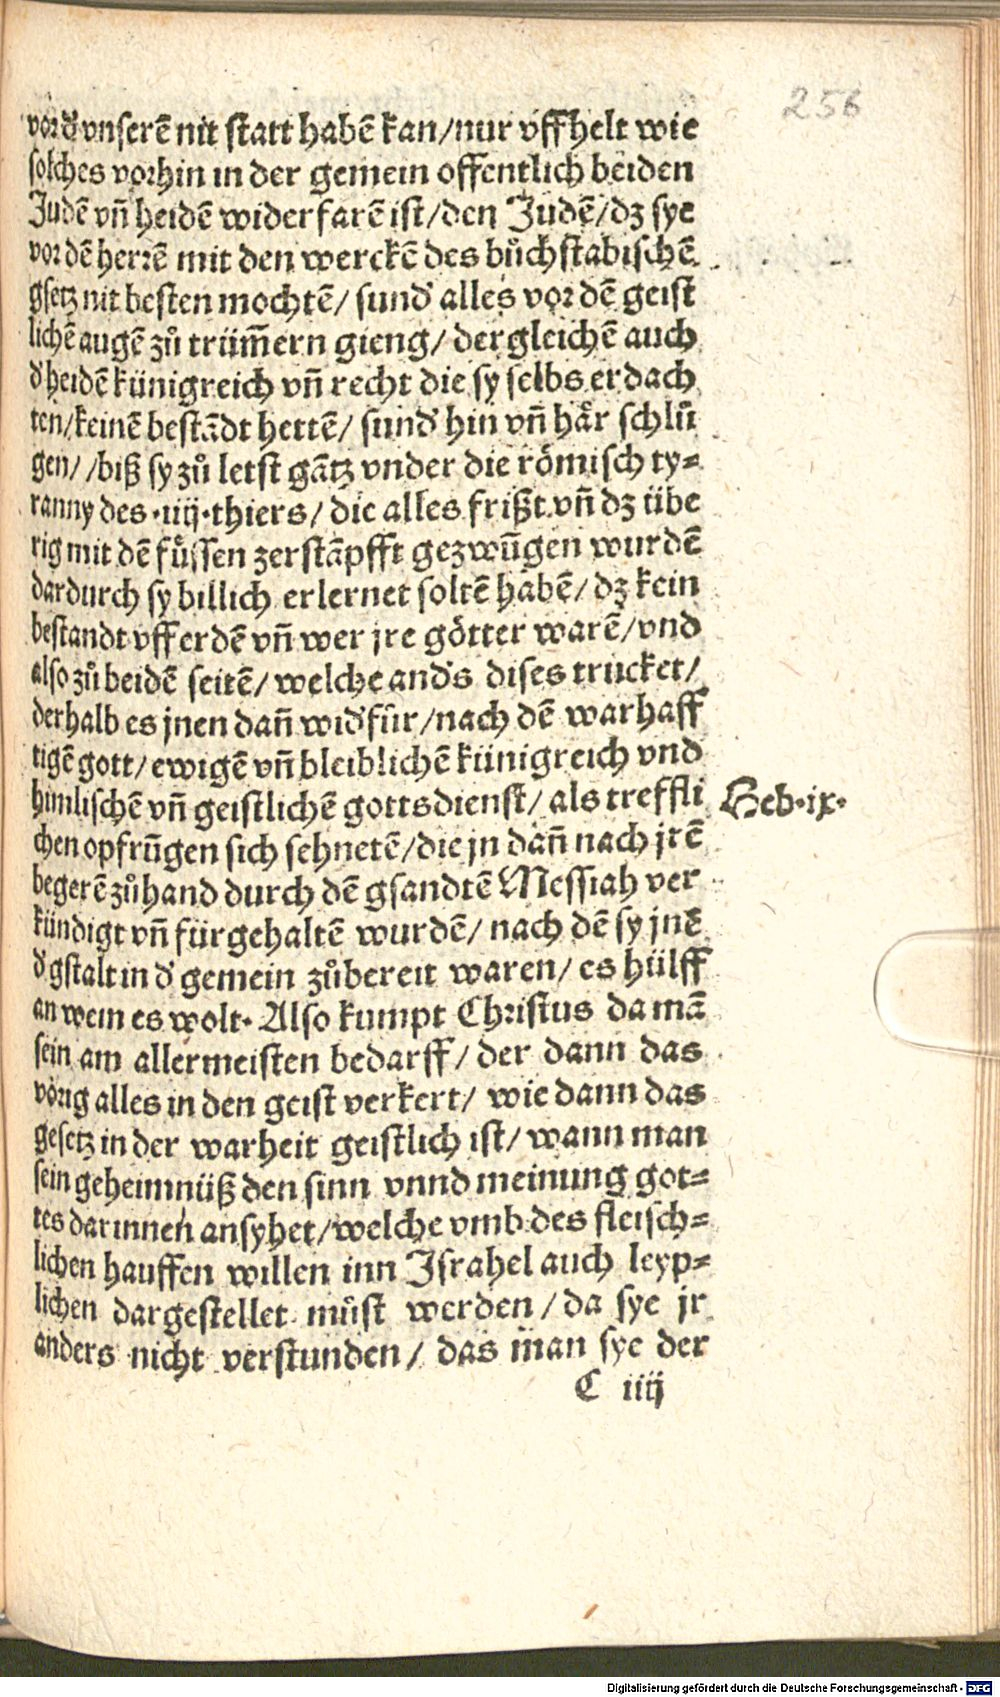 256
vor d' vnserẽ nit statt habẽ kan/nur vffhelt wie
solches vorhin in der gemein offentlich beiden
Judẽ vñ heidẽ widerfarẽ ist/den Judẽ/dz sye
vor dẽ herrẽ mit den werckẽ des bůchstabischẽ
gsetz nit besten mochtẽ/ sund' alles vor dẽ geist
lichẽ augẽ zů trüm̃ern gieng/ dergleichẽ auch
d' heidẽ künigreich vñ recht die sy selbs erdach
ten/keinẽ bestãdt hettẽ/ sund' hin vñ hår schlů
gen/ /biß sy zů letst gãtz vnder die römisch ty⸗
ranny des ·iiij·thiers/ die alles frißt vñ dz übe
rig mit dẽ fůssen zerstãpfft gezwũgen wurdẽ
dardurch sy billich erlernet soltẽ habẽ/ dz kein
bestandt vff erdẽ vñ wer jre götter warẽ/vnd
also zů beidẽ seitẽ/ welche and's dises trucket/
derhalb es jnen dañ wid'für/nach dẽ warhaff
tigẽ gott/ ewigẽ vñ bleiblichẽ künigreich vnd
himlischẽ vñ geistlichẽ gottsdienst/ als treffli
Heb·ix·
chen opfrũgen sich sehnetẽ/die jn dañ nach jrẽ
begerẽ zůhand durch dẽ gsandtẽ Messiah ver
kündigt vñ fürgehaltẽ wurdẽ/ nach dẽ sy jnẽ
d' gstalt in d' gemein zůbereit waren/ es hülff
an wem es wolt· Also kumpt Christus da mã
sein am allermeisten bedarff/ der dann das
vörig alles in den geist verkert/ wie dann das
gesetz in der warheit geistlich ist/ wann man
sein geheimnüß den sinn vnnd meinung got⸗
tes darinnen ansyhet/welche vmb des fleisch⸗
lichen hauffen willen inn Jsrahel auch leyp⸗
lichen dargestellet můst werden/da sye jr
anders nicht verstunden/ das man sye der
C iiij
Digitalisierung gefördert durch die Deutsche Forschungsgemeinschaft - DFG